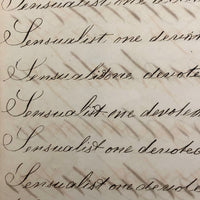 Sensualist one devote
Sensualist one devote
Sensualist one devote
Sensualist one devoted
Sensualist one devoted
Sensualist one devote